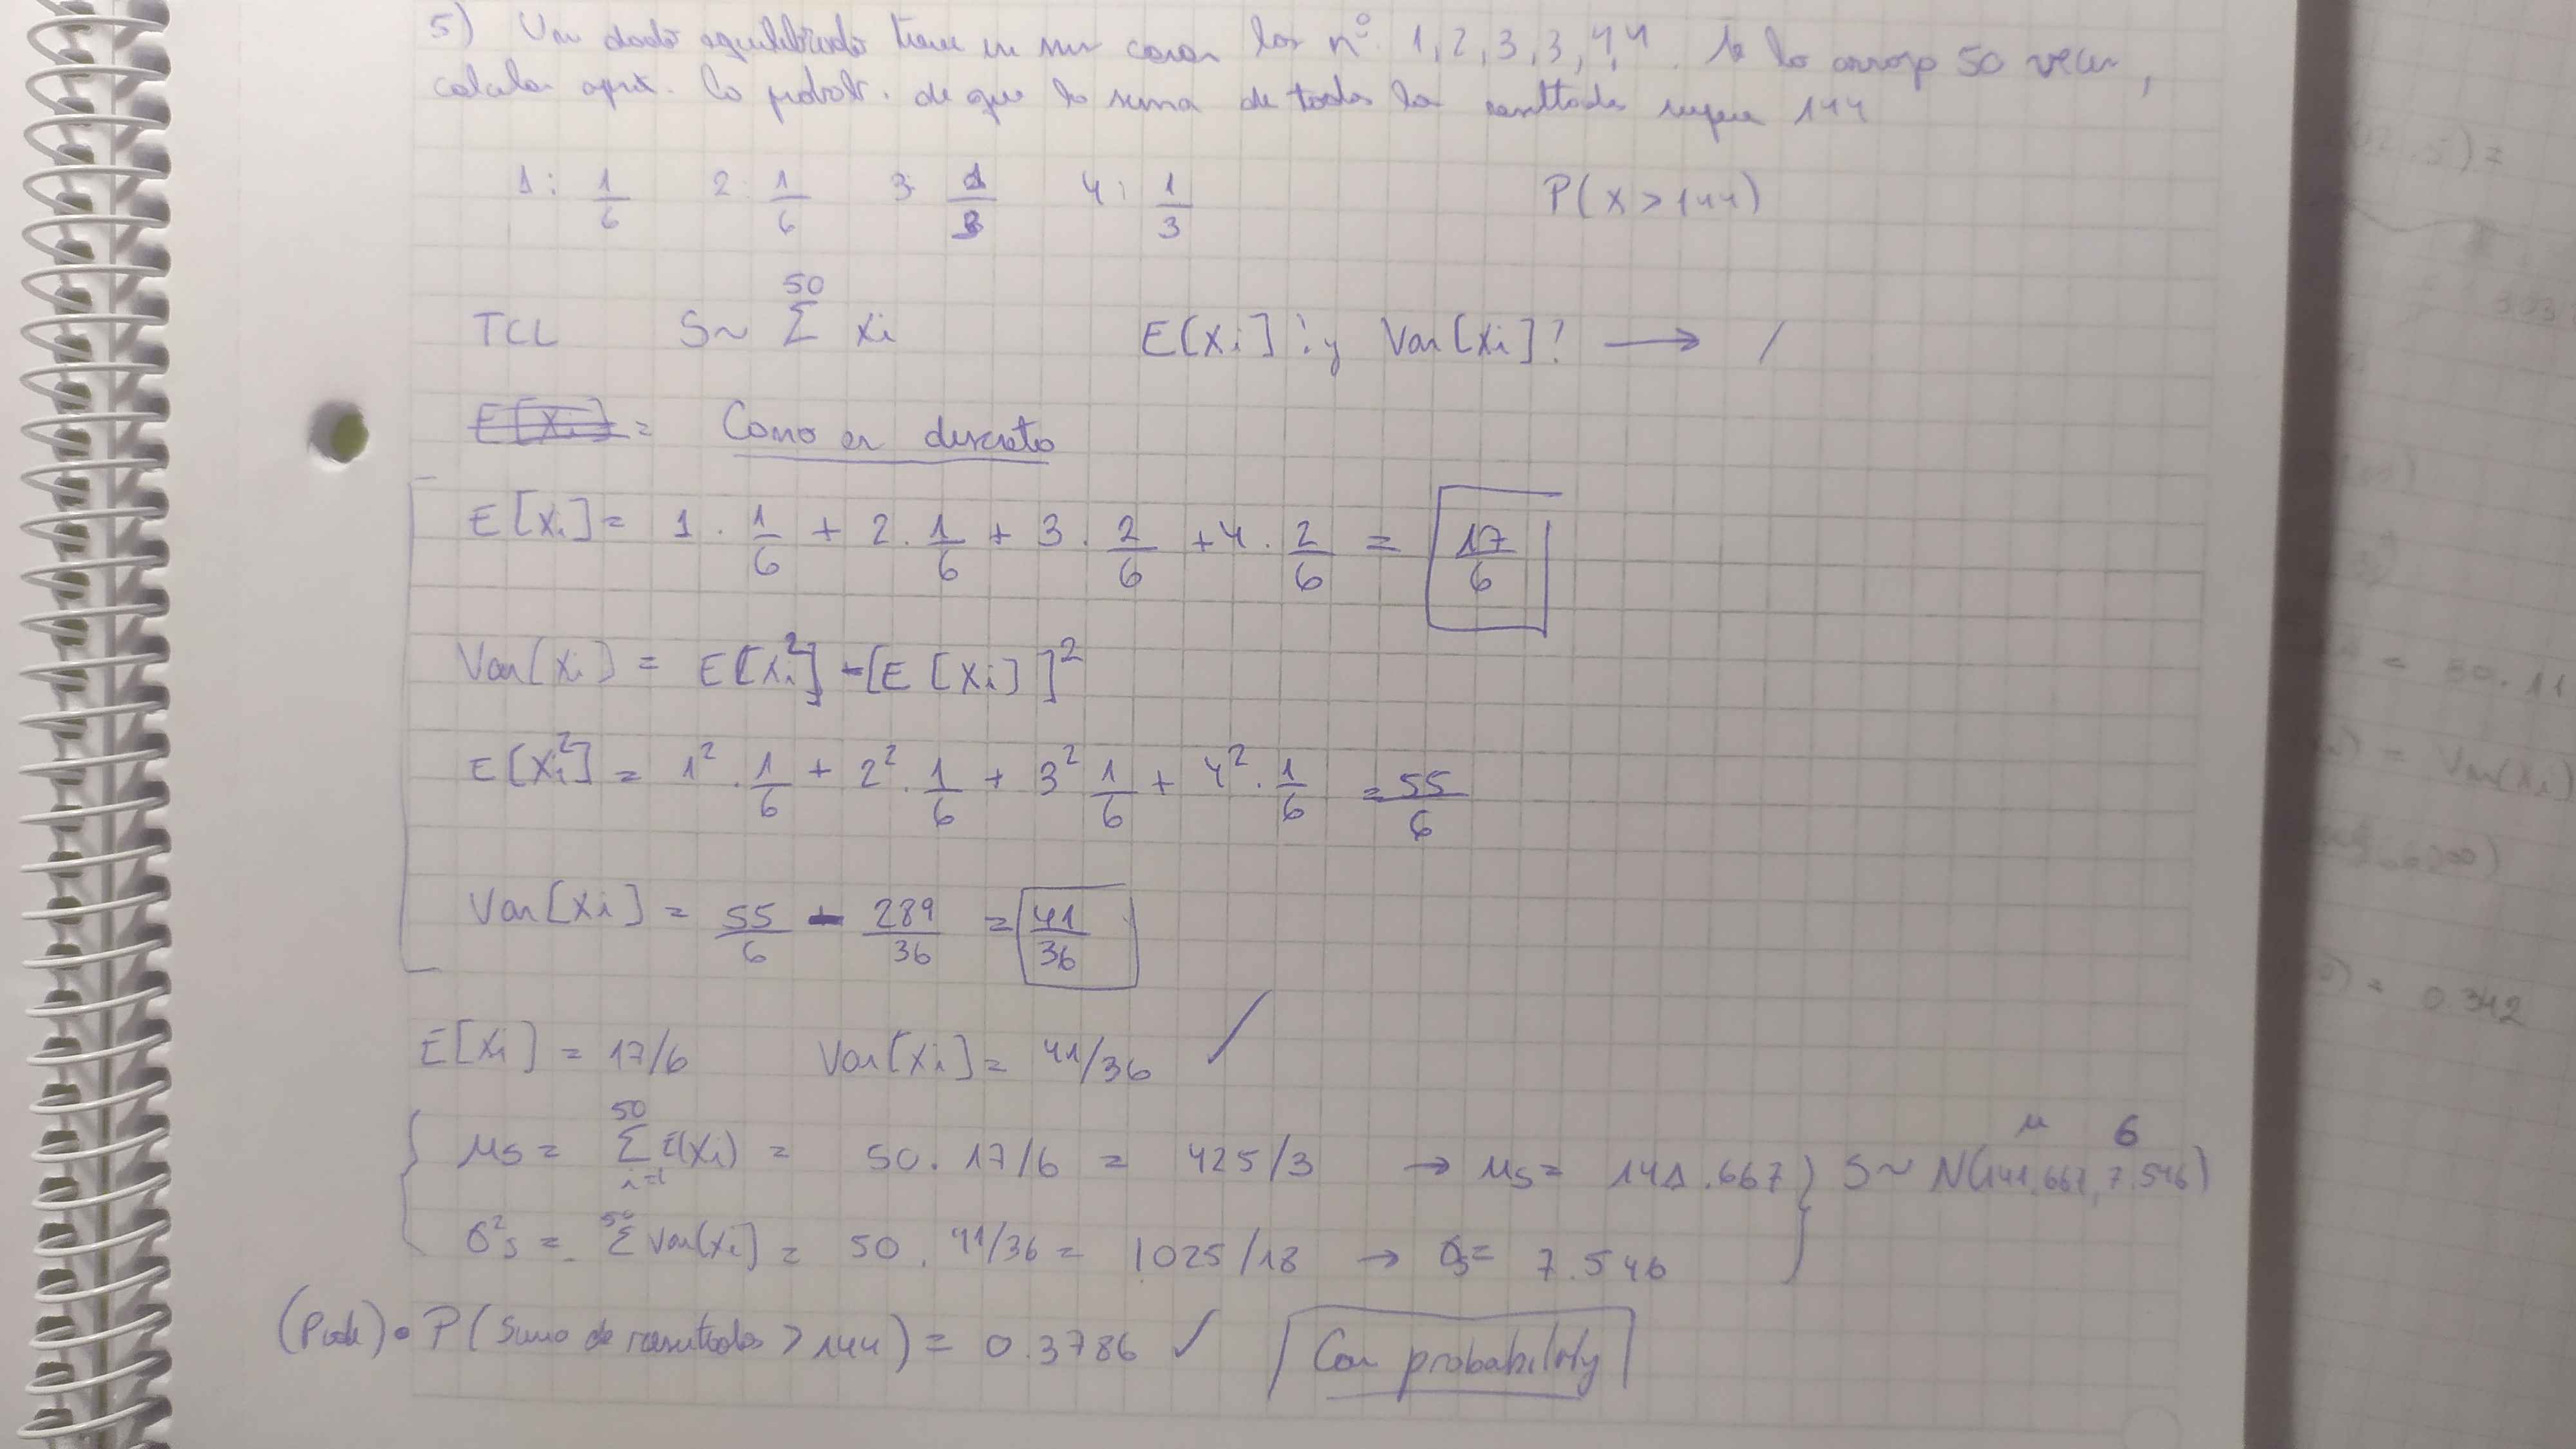 5) Un dado equilibrado tiene en sus caras los nº 1, 2, 3, 3, 4, 4. Se lo arroja 50 veces,
calcular aprox. la probab. de que la suma de todos los resultados supere 144
1: 1/6 2: 1/6 3: 1/3 4: 1/3 P(X > 144)
TCL S ~ Σ^50 Xi E[Xi] ¿y Var[Xi]? → /
E[Xi] = Como es discreto
E[Xi] = 1 . 1/6 + 2 . 1/6 + 3 . 2/6 + 4 . 2/6 = 17/6
Var(Xi) = E[Xi²] - [E[Xi]]²
E[Xi²] = 1² . 1/6 + 2² . 1/6 + 3² 1/6 + 4² . 1/6 = 55/6
Var[Xi] = 55/6 - 289/36 = 41/36
E[Xi] = 17/6 Var[Xi] = 41/36 ✓
μs = Σ^50_{i=1} E(Xi) = 50 . 17/6 = 425/3 → μs = 141.667 } S ~ N(141.667, 7.546)
μ σ
σ²s = Σ^50 Var[Xi] = 50 . 41/36 = 1025/18 → σs = 7.546
P(Suma de resultados > 144) = 0.3786 ✓ Con probability
= 50.11
= Var(Xi)
= 0.342